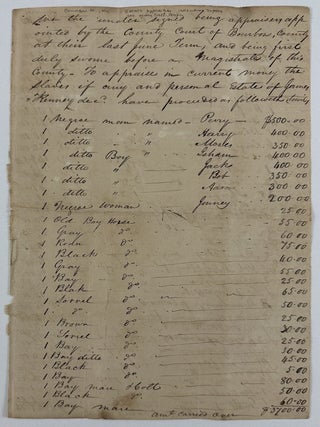 We the under signed being appraisers app
ointed by the County Court of Bourbon County
at their last June Term, and being first
duly sworn before a Magistrate of this
County To appraise in current money the
Slaves if any and personal Estate of James
Kenney decd. have proceeded as followeth
1 Negroe man named Perry $500.00
1 ditto " Harry 400.00
1 ditto " Moses 350.00
1 ditto Boy " 400.00
1 ditto " Jack 400.00
1 ditto " Bob 350.00
1 ditto " Aaron 300.00
1 Negroe Woman Jenney 200.00
1 Old Bay Horse 25.00
1 Gray do 55.00
1 Roan do 60.00
1 Black do 75.00
1 Gray do 40.00
1 Bay do 55.00
1 Black do 25.00
1 Sorrel do 65.00
1 do 50.00
1 Brown do 25.00
1 Sorrel do 20.00
1 Bay do 25.00
1 Bay ditto do 30.00
1 Black do 45.00
1 Bay do 5.00
1 Bay mare & Colt 80.00
1 Black do 50.00
1 Bay mare 60.00
amt carried over $3700.00